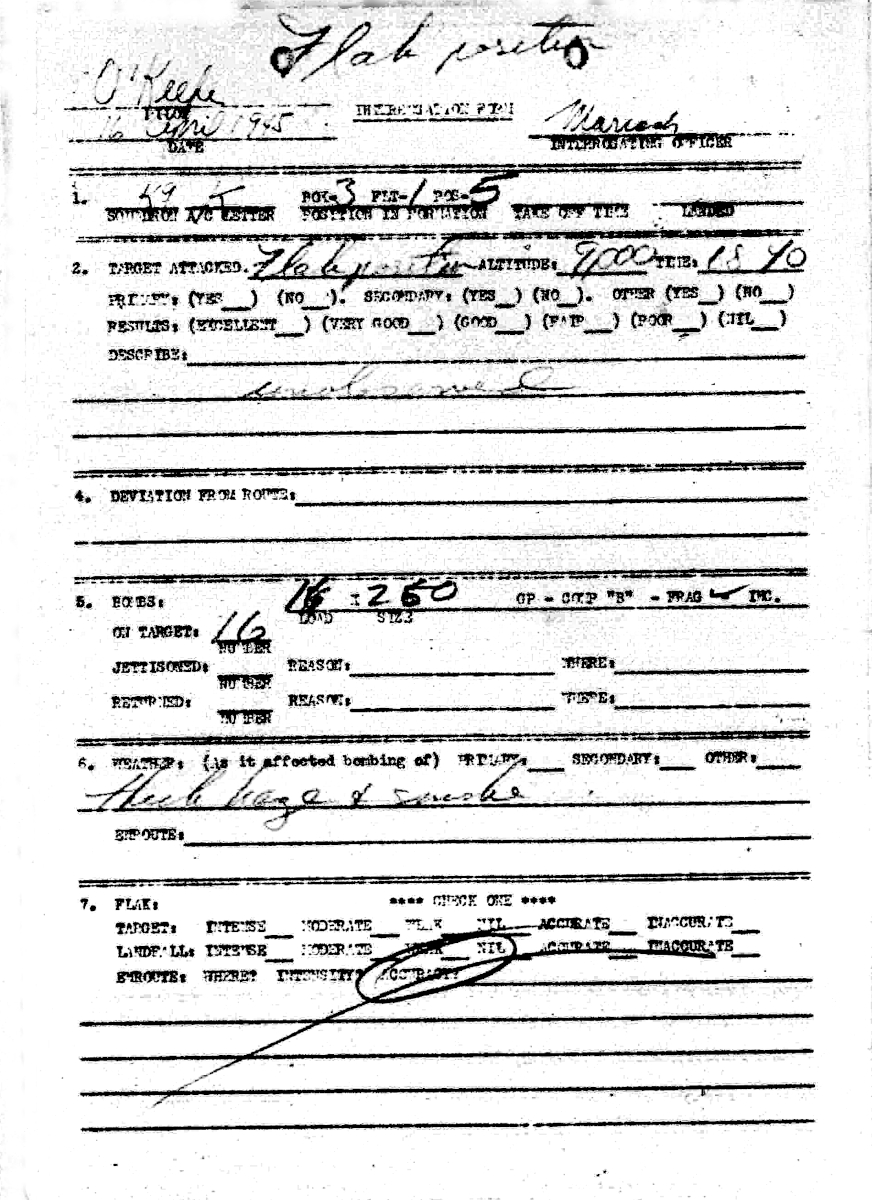 Flak position
O'Keefe
PILOT
INTERROGATION FORM
16 April 1945
DATE
INTERROGATING OFFICER
1. BOX-3 FLT-1 POS-5
SQUADRON A/C LETTER POSITION IN FORMATION TAKE OFF TIME LANDED
2. TARGET ATTACKED. Flak position ALTITUDE: 9000 TIME: 1840
PRIMARY: (YES__) (NO__). SECONDARY: (YES__) (NO__). OTHER (YES__) (NO__)
RESULTS: (EXCELLENT__) (VERY GOOD__) (GOOD__) (FAIR__) (POOR__) (NIL__)
DESCRIBE:
unobserved
4. DEVIATION FROM ROUTE:
5. BOMBS: 16 X 260 GP - COMP "B" - FRAG ✓ INC.
LOAD SIZE
ON TARGET: 16
NUMBER
JETTISONED: REASON: WHERE:
NUMBER
RETURNED: REASON: WHERE:
NUMBER
6. WEATHER: (As it affected bombing of) PRIMARY:__ SECONDARY:__ OTHER:__
thick haze & smoke
ENROUTE:
7. FLAK: **** CHECK ONE ****
TARGET: INTENSE__ MODERATE__ WEAK__ NIL__ ACCURATE__ INACCURATE__
LANDFALL: INTENSE__ MODERATE__ WEAK__ NIL__ ACCURATE__ INACCURATE__
ENROUTE: WHERE? INTENSITY? ACCURACY?